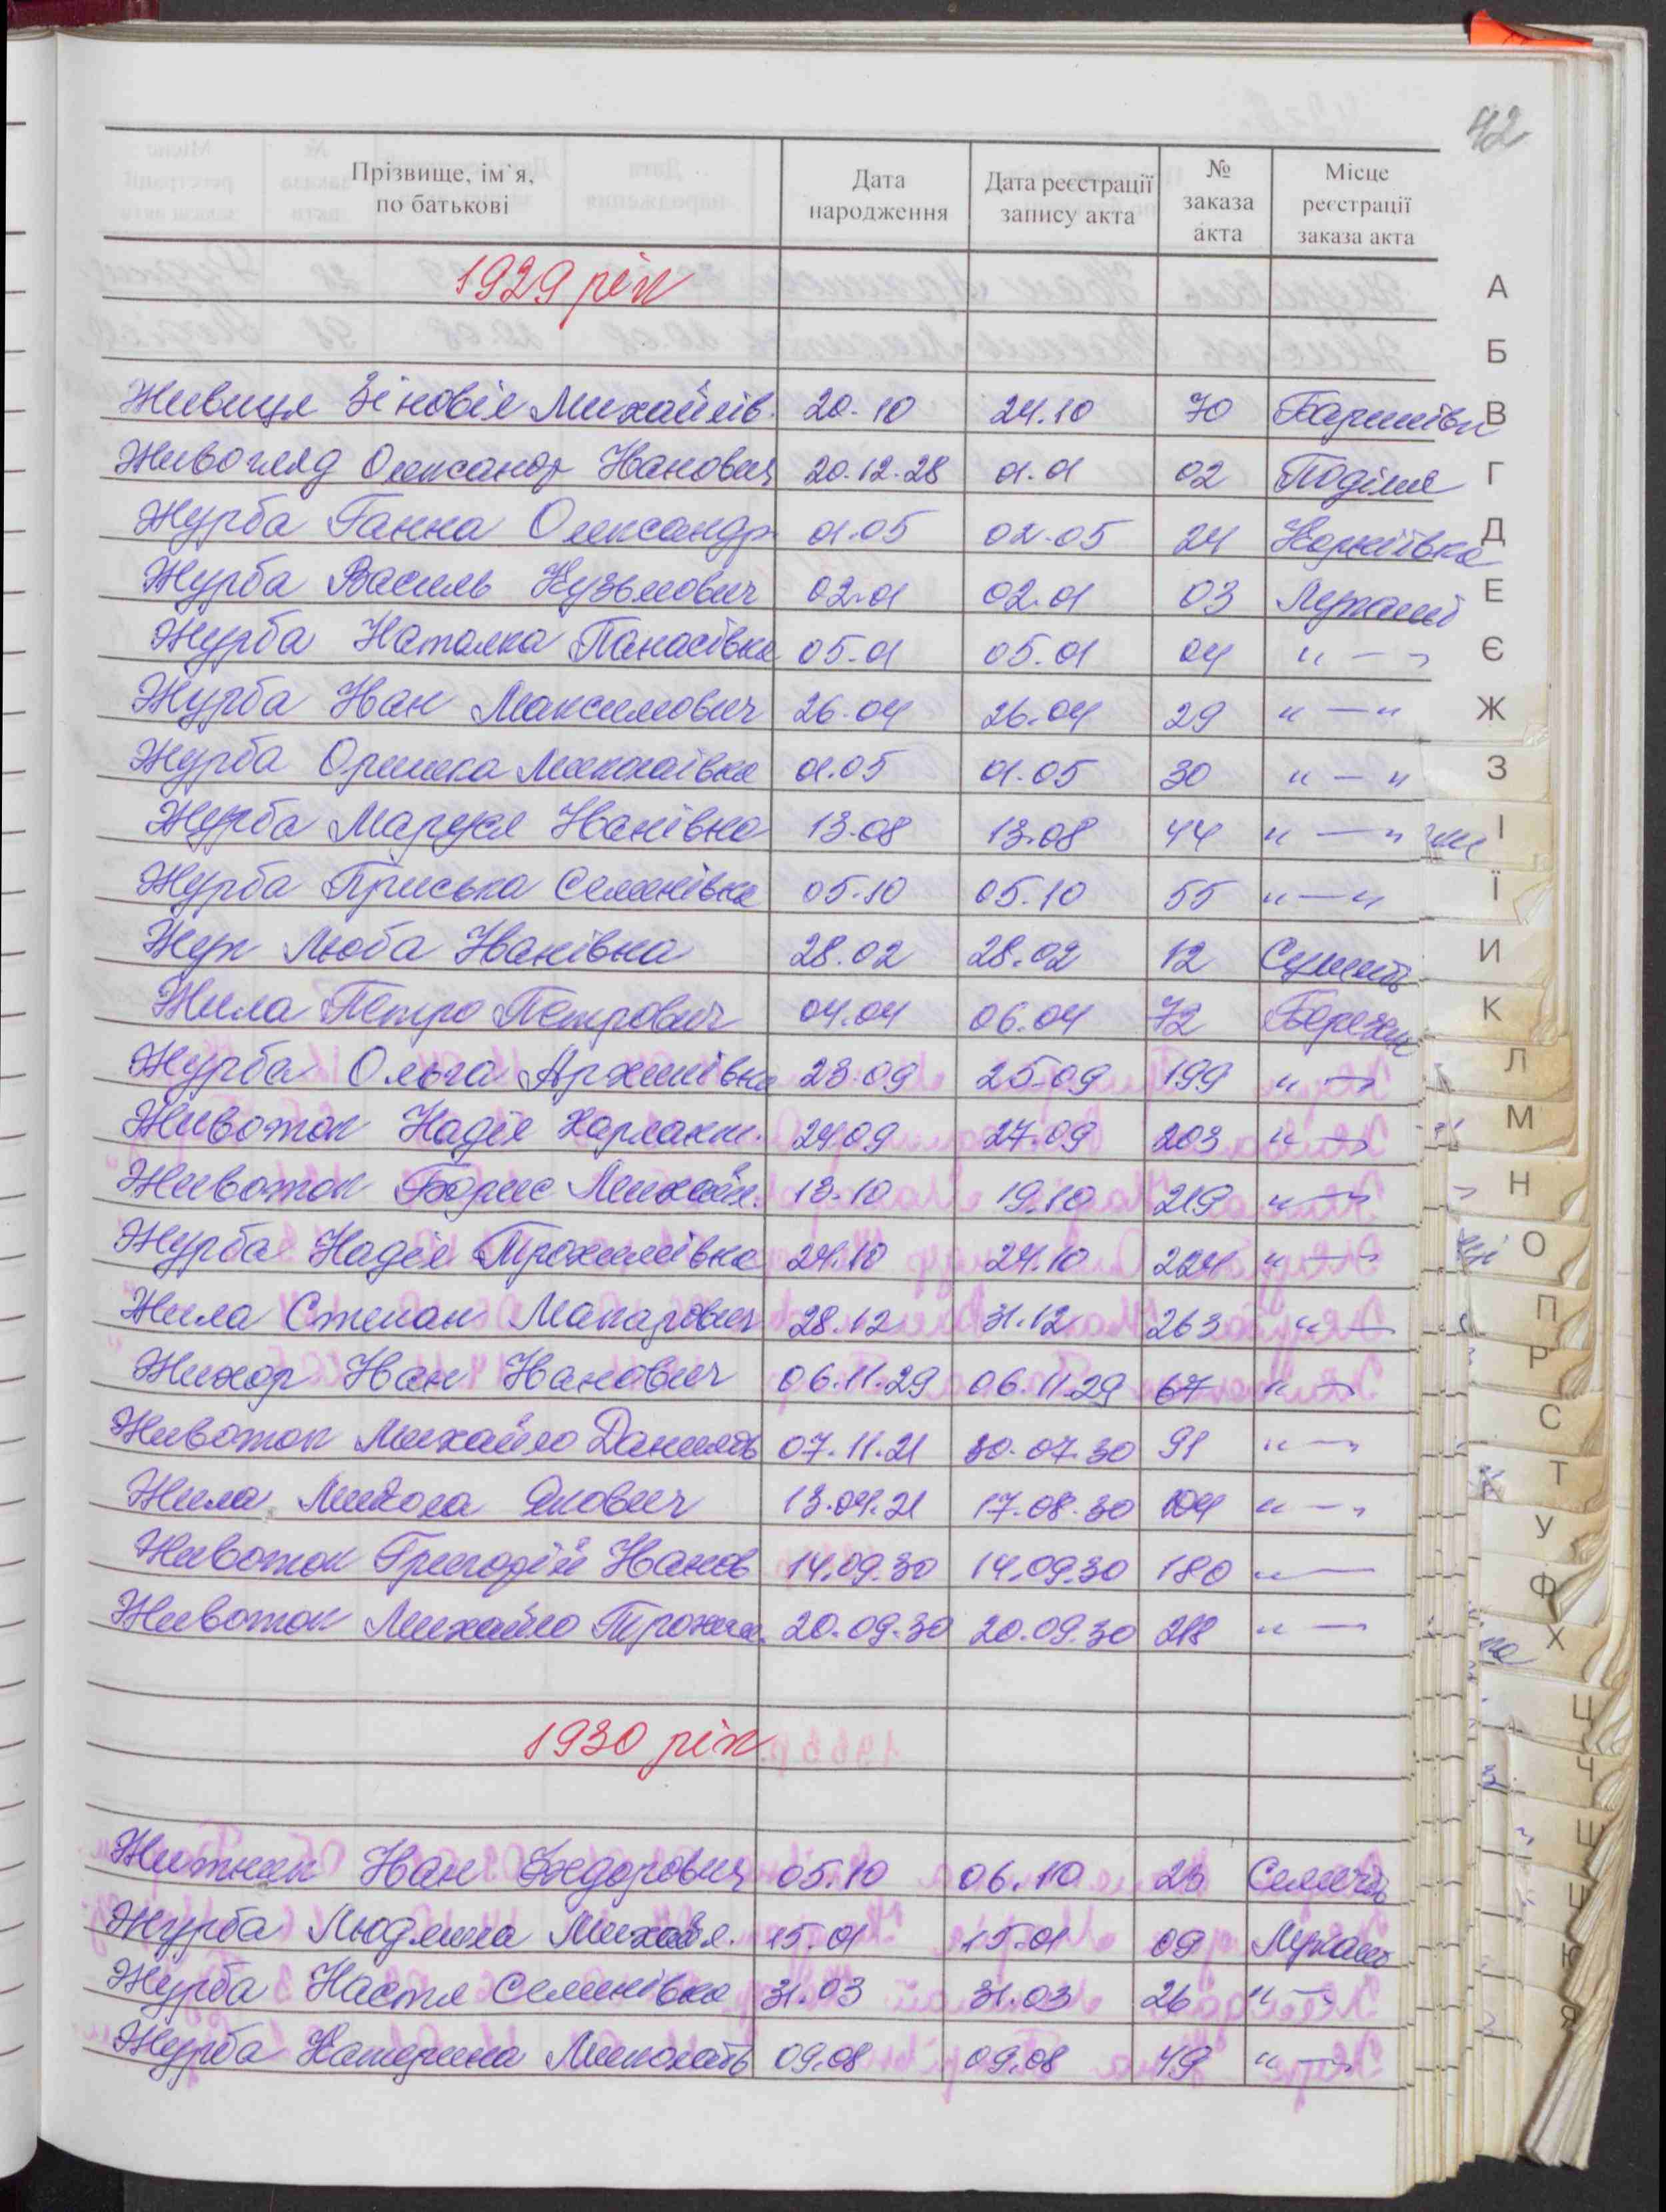 42
Прізвище, ім'я, по батькові | Дата народження | Дата реєстрації запису акта | № заказа акта | Місце реєстрації заказа акта
1929 рік
Живиця Зіновія Михайлів. 20.10 24.10 70 Баришівка
Живогляд Олександр Іванович 20.12.28 01.01 02 Поділля
Журба Ганна Олександр 01.05 02.05 24 Корніївка
Журба Василь Кузьмович 02.01 02.01 03 Лукаші
Журба Наталка Панасівна 05.01 05.01 04 "—"
Журба Іван Максимович 26.04 26.04 29 "—"
Журба Оришка Миколаївна 01.05 01.05 30 "—"
Журба Маруся Іванівна 13.08 13.08 44 "—"
Журба Пріська Семенівна 05.10 05.10 55 "—"
Жук Люба Іванівна 28.02 28.02 12
Жила Петро Петрович 04.04 06.04 72 Березан
Журба Ольга Архипівна 23.09 25.09 199 "—"
Животок Надія Харламп. 24.09 27.09 203 "—"
Животок Борис Михайл. 13.10 19.10 219 "—"
Журба Надія Трохимівна 24.10 24.10 224 "—"
Жила Степан Макарович 28.12 31.12 263 "—"
Жихор Іван Іванович 06.11.29 06.11.29 67 "—"
Животок Михайло Данилов 07.11.21 30.07.30 91 "—"
Жила Микола Якович 13.04.21 17.08.30 104 "—"
Животок Григорій Іванов 14.09.30 14.09.30 180 "—
Животок Михайло Трохим. 20.09.30 20.09.30 218 "—
1930 рік
Житник Іван Федорович 05.10 06.10 23
Журба Людмила Михайл. 15.01 15.01 09 Лукаші
Журба Настя Семенівна 31.03 31.03 26 "—"
Журба Катерина Миколаїв 09.08 09.08 49 "—"
А
Б
В
Г
Д
Е
Є
Ж
З
І
Ї
И
К
Л
М
Н
О
П
Р
С
Т
У
Ф
Х
Ц
Ч
Ш
Щ
Ю
Я